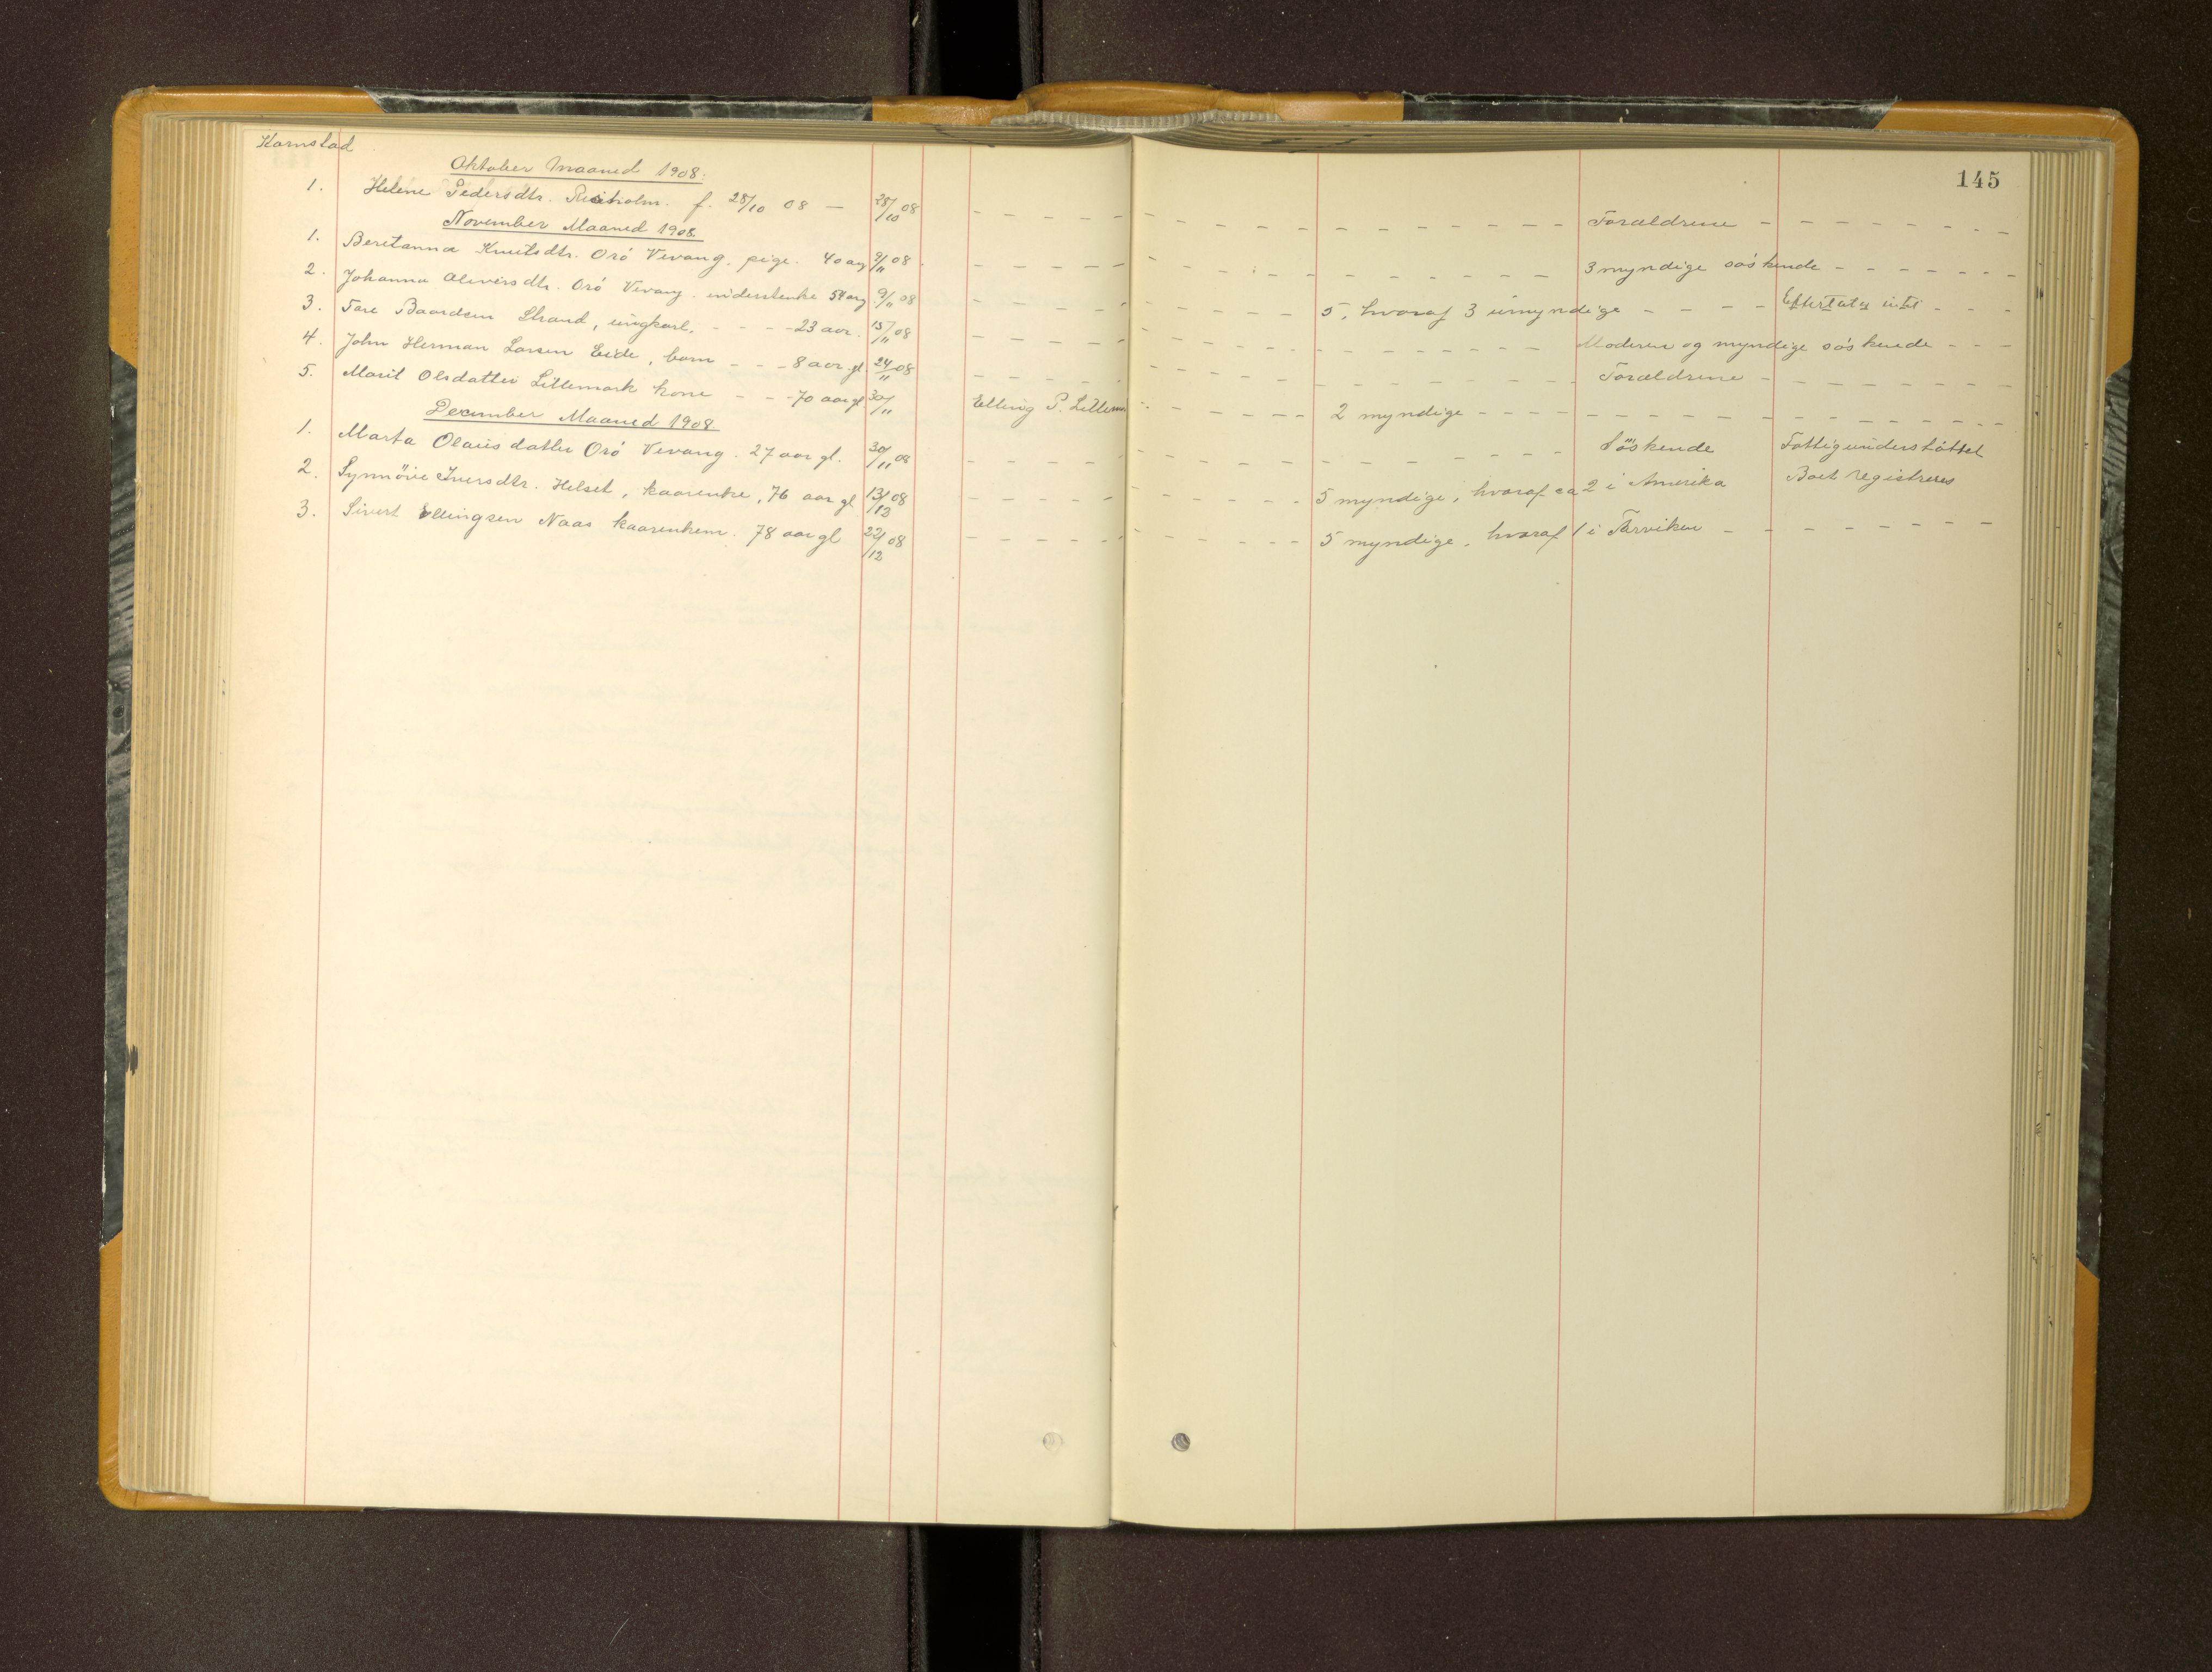 Kornstad
145
Oktober Maaned 1908.
1. Helene Pedersdtr. Reiholm. f. 28/10 08 — 28/10 08 Forældrene
November Maaned 1908.
1. Beretanna Knutsdtr. Orö Vevang. pige. 40 aar 9/11 08 3 myndige söskende
2. Johanna Oliversdtr. Orö Vevang. enke 54 aar 9/11 08 5, hvoraf 3 umyndige Efterlatg intet
3. Tore Baardsen Strand, ungkarl, 23 aar. 15/11 08 Moderen og myndige söskende
4. John Herman Larsen Eide, barn 8 aar gl 24/11 08 Forældrene
5. Marit Olsdatter Lillemork kone 70 aar gl 30/11 Elling P. Lillem 2 myndige
December Maaned 1908
1. Marta Olausdatter Orö Vevang. 27 aar gl. 30/11 08 Söskende Fattigunderstöttet
2. Synnöve Iversdtr. Helset, kaarenke, 76 aar gl 13/12 08 5 myndige, hvoraf ca 2 i Amerika Boet registreres
3. Sivert Ellingsen Naas kaarenkem. 78 aar gl 22/12 08 5 myndige, hvoraf 1 i Tarviken